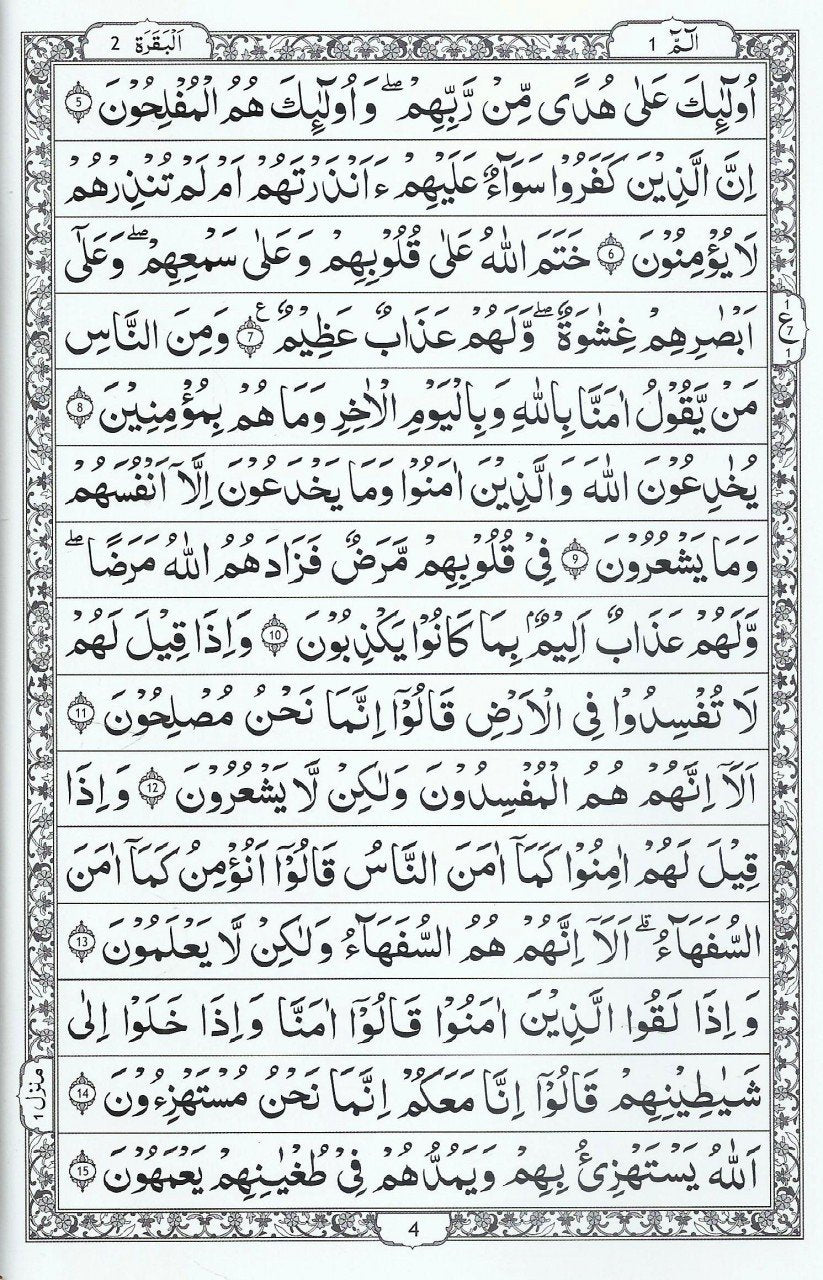 الٓمّٓ 1
اَلْبَقَرَة 2
اُولٰٓئِكَ عَلٰى هُدًى مِّنْ رَّبِّهِمْ ۖ وَاُولٰٓئِكَ هُمُ الْمُفْلِحُوْنَ 5
اِنَّ الَّذِيْنَ كَفَرُوْا سَوَآءٌ عَلَيْهِمْ ءَاَنْذَرْتَهُمْ اَمْ لَمْ تُنْذِرْهُمْ
لَا يُؤْمِنُوْنَ 6 خَتَمَ اللّٰهُ عَلٰى قُلُوْبِهِمْ وَعَلٰى سَمْعِهِمْ ۖ وَعَلٰٓى
اَبْصٰرِهِمْ غِشٰوَةٌ ۖ وَّلَهُمْ عَذَابٌ عَظِيْمٌ 7 ع وَمِنَ النَّاسِ
1 ع 7 1
مَنْ يَّقُوْلُ اٰمَنَّا بِاللّٰهِ وَبِالْيَوْمِ الْاٰخِرِ وَمَا هُمْ بِمُؤْمِنِيْنَ 8
يُخٰدِعُوْنَ اللّٰهَ وَالَّذِيْنَ اٰمَنُوْا وَمَا يَخْدَعُوْنَ اِلَّآ اَنْفُسَهُمْ
وَمَا يَشْعُرُوْنَ 9 فِيْ قُلُوْبِهِمْ مَّرَضٌ فَزَادَهُمُ اللّٰهُ مَرَضًا ۖ
وَّلَهُمْ عَذَابٌ اَلِيْمٌۢ بِمَا كَانُوْا يَكْذِبُوْنَ 10 وَاِذَا قِيْلَ لَهُمْ
لَا تُفْسِدُوْا فِى الْاَرْضِ قَالُوْٓا اِنَّمَا نَحْنُ مُصْلِحُوْنَ 11
اَلَآ اِنَّهُمْ هُمُ الْمُفْسِدُوْنَ وَلٰكِنْ لَّا يَشْعُرُوْنَ 12 وَاِذَا
قِيْلَ لَهُمْ اٰمِنُوْا كَمَآ اٰمَنَ النَّاسُ قَالُوْٓا اَنُؤْمِنُ كَمَآ اٰمَنَ
السُّفَهَآءُ ۗ اَلَآ اِنَّهُمْ هُمُ السُّفَهَآءُ وَلٰكِنْ لَّا يَعْلَمُوْنَ 13
وَاِذَا لَقُوا الَّذِيْنَ اٰمَنُوْا قَالُوْٓا اٰمَنَّا وَاِذَا خَلَوْا اِلٰى
شَيٰطِيْنِهِمْ قَالُوْٓا اِنَّا مَعَكُمْ اِنَّمَا نَحْنُ مُسْتَهْزِءُوْنَ 14
منزل 1
اَللّٰهُ يَسْتَهْزِئُ بِهِمْ وَيَمُدُّهُمْ فِيْ طُغْيٰنِهِمْ يَعْمَهُوْنَ 15
4